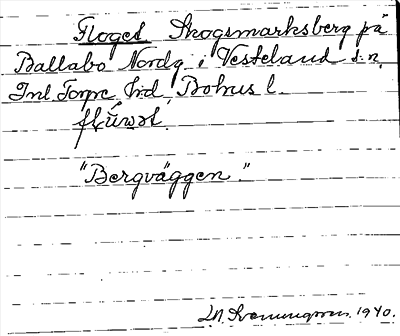 Floget Skogsmarksberg på
Ballabo Nordg. i Vesteland s:n,
Inl Torpe h:d, Bohus l.
flŭwət.
"Bergväggen."
1940.